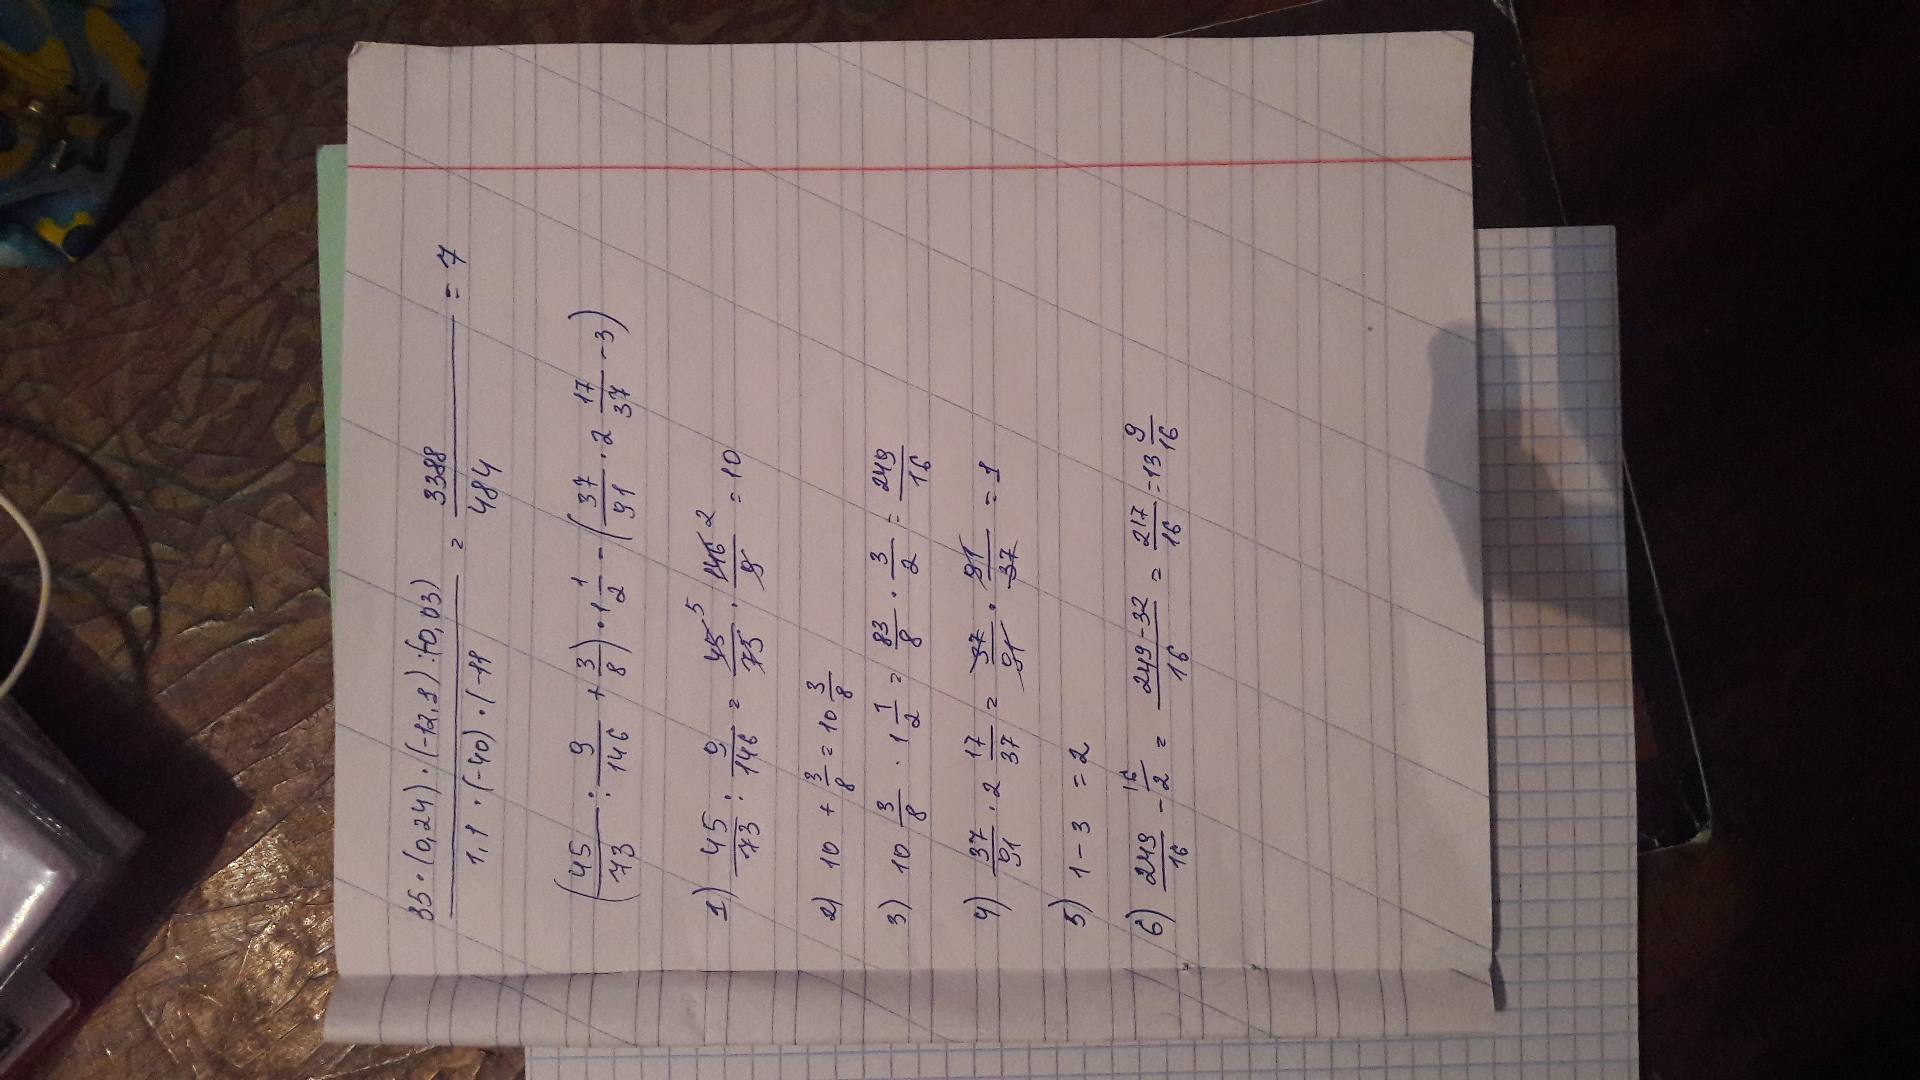 35 · (0,24) · (-12,1) : (-0,03) / 1,1 · (-40) · (-11 = 3388/484 = 7
(45/73 : 9/146 + 3/8) · 1 1/2 - (37/91 · 2 17/37 - 3)
1) 45/73 : 9/146 = 45 5/73 · 146 2/9 = 10
2) 10 + 3/8 = 10 3/8
3) 10 3/8 · 1 1/2 = 83/8 · 3/2 = 249/16
4) 37/91 · 2 17/37 = 37/91 · 91/37 = 1
5) 1 - 3 = 2
6) 249/16 - 16/2 = 249-32/16 = 217/16 = 13 9/16